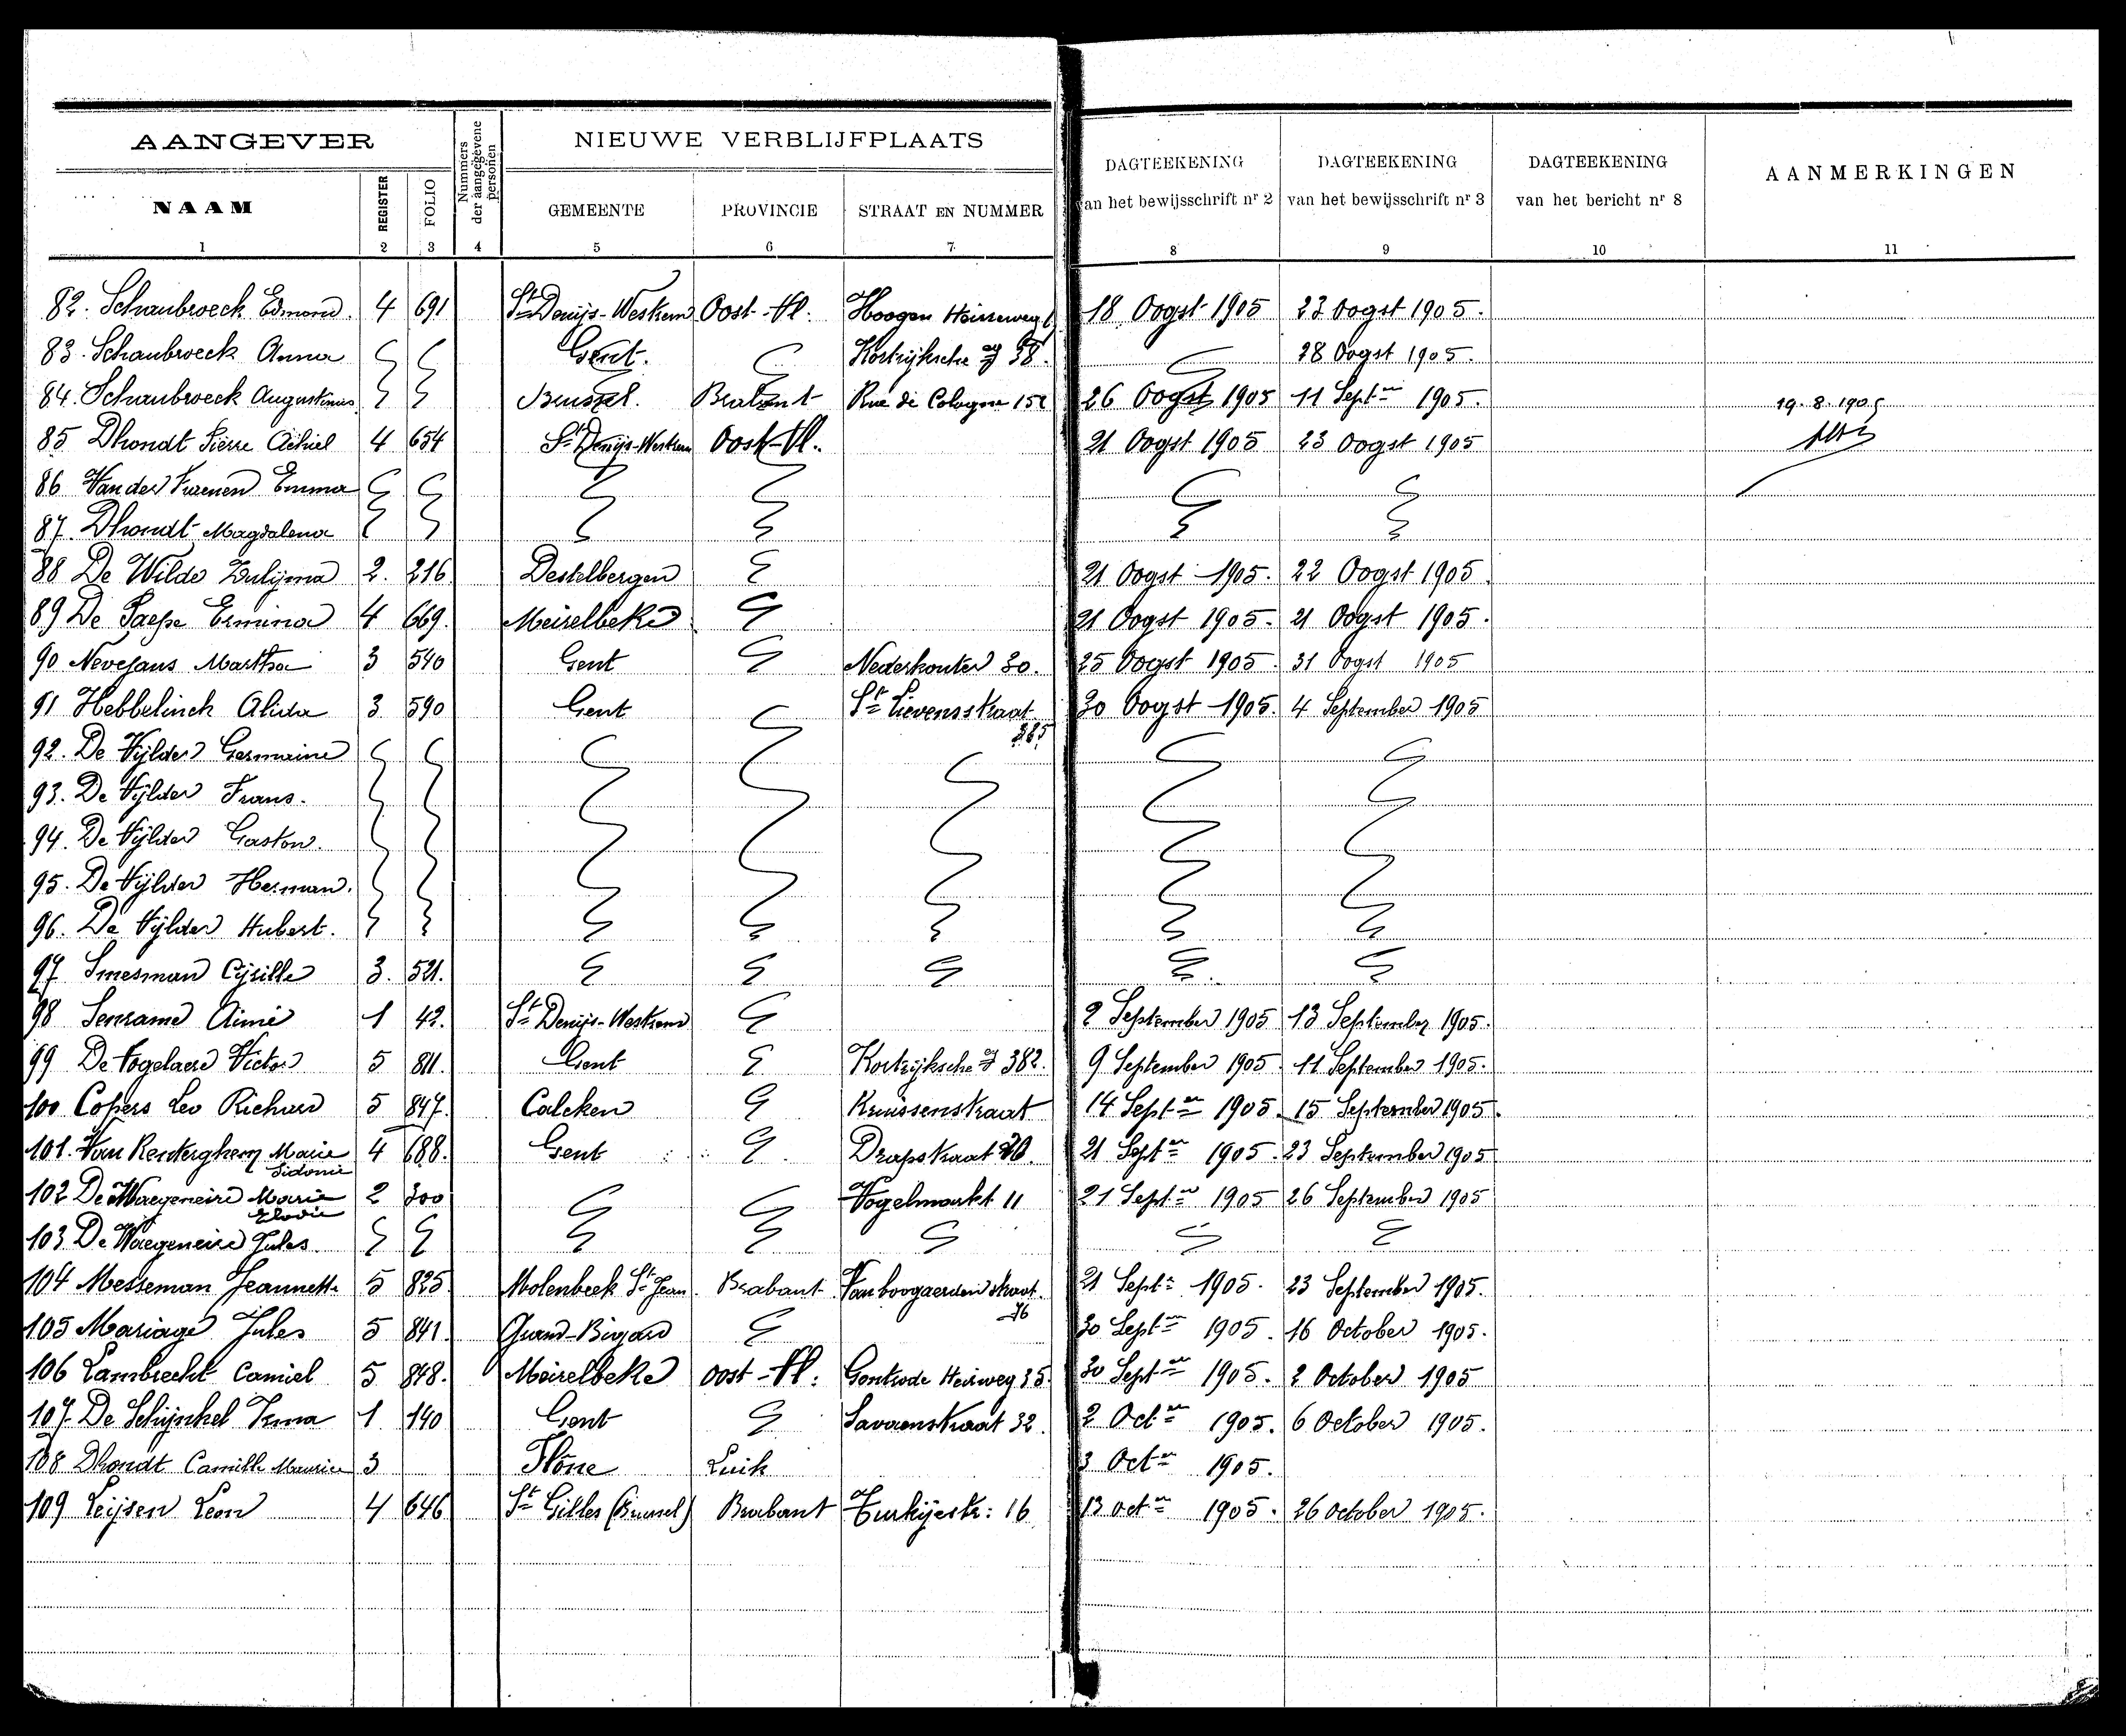 AANGEVER
Nummers der aangegevene personen
NIEUWE VERBLIJFPLAATS
DAGTEEKENING van het bewijsschrift nr 2
DAGTEEKENING van het bewijsschrift nr 3
DAGTEEKENING van het bericht nr 8
AANMERKINGEN
NAAM REGISTER FOLIO GEMEENTE PROVINCIE STRAAT EN NUMMER
1 2 3 4 5 6 7 8 9 10 11
82. Schaubroeck Edmond. 4 691 St Denijs-Westrem Oost-Vl. Hoogen 18 Oogst 1905 23 Oogst 1905.
83. Schaubroeck Anna Gent. Kortrijksche 38. 28 Oogst 1905.
84. Schaubroeck Augustinus Brussel. Brabant Rue de Cologne 26 Oogst 1905 11 Septer 1905. 19.8.1905
85 Dhondt Pierre Achiel 4 654 St Denijs-Westrem Oost-Vl. 21 Oogst 1905 23 Oogst 1905
86 Emma
87. Dhondt Magdalena
88 De Wilde Zulijma 2. 216 Destelbergen 21 Oogst 1905. 22 Oogst 1905.
89 De Paepe Ermina 4 669. Meirelbeke 21 Oogst 1905. 21 Oogst 1905.
90 Nevejans Martha 3 540 Gent Nederkouter 30. 25 Oogst 1905. 31 Oogst 1905
91 Hebbelinck Alida 3 590 Gent St Lievensstraat 30 Oogst 1905. 4 September 1905
92. De Vijlder Germaine
93. De Vijlder Frans.
94. De Vijlder Gaston.
95. De Vijlder Herman.
96. De Vijlder Hubert.
97 Smesman Cijrille 3. 521.
98 Aimé 1 42. St Denijs-Westrem 2 September 1905 13 September 1905.
99 De Vogelaere Victor 5 811. Gent Kortrijksche 382. 9 September 1905. 11 September 1905.
100 Copers Leo Richard 5 847. Calcken Kruissenstraat 14 Septer 1905. 15 September 1905.
101. Van Renterghem Marie Sidonie 4 688. Gent Drapstraat 21 Septer 1905. 23 September 1905
102 De Waegeneire Marie Elodie 2 300 Vogelmarkt 11 21 Septer 1905 26 September 1905
103 De Waegeneire Jules.
104 Messeman Jeannette 5 825 Molenbeek St Jean. Brabant 21 Septr 1905. 23 September 1905.
76
105 Mariage Jules 5 841. Grand-Bigard 30 Septer 1905. 16 October 1905.
106 Lambrecht Camiel 5 848. Meirelbeke Oost-Vl. Gontrode Heirweg 35. 30 Septer 1905. 2 October 1905
107. De Schijnckel Irma 1 140 Gent Savaenstraat 32. 2 Octer 1905. 6 October 1905.
108 Dhondt Camille Maurice 3 Flône Luik 3 Octer 1905.
109 Leijsen Leon 4 646 St Gilles (Brussel) Brabant Turkijestr: 16 13 Octer 1905. 26 October 1905.